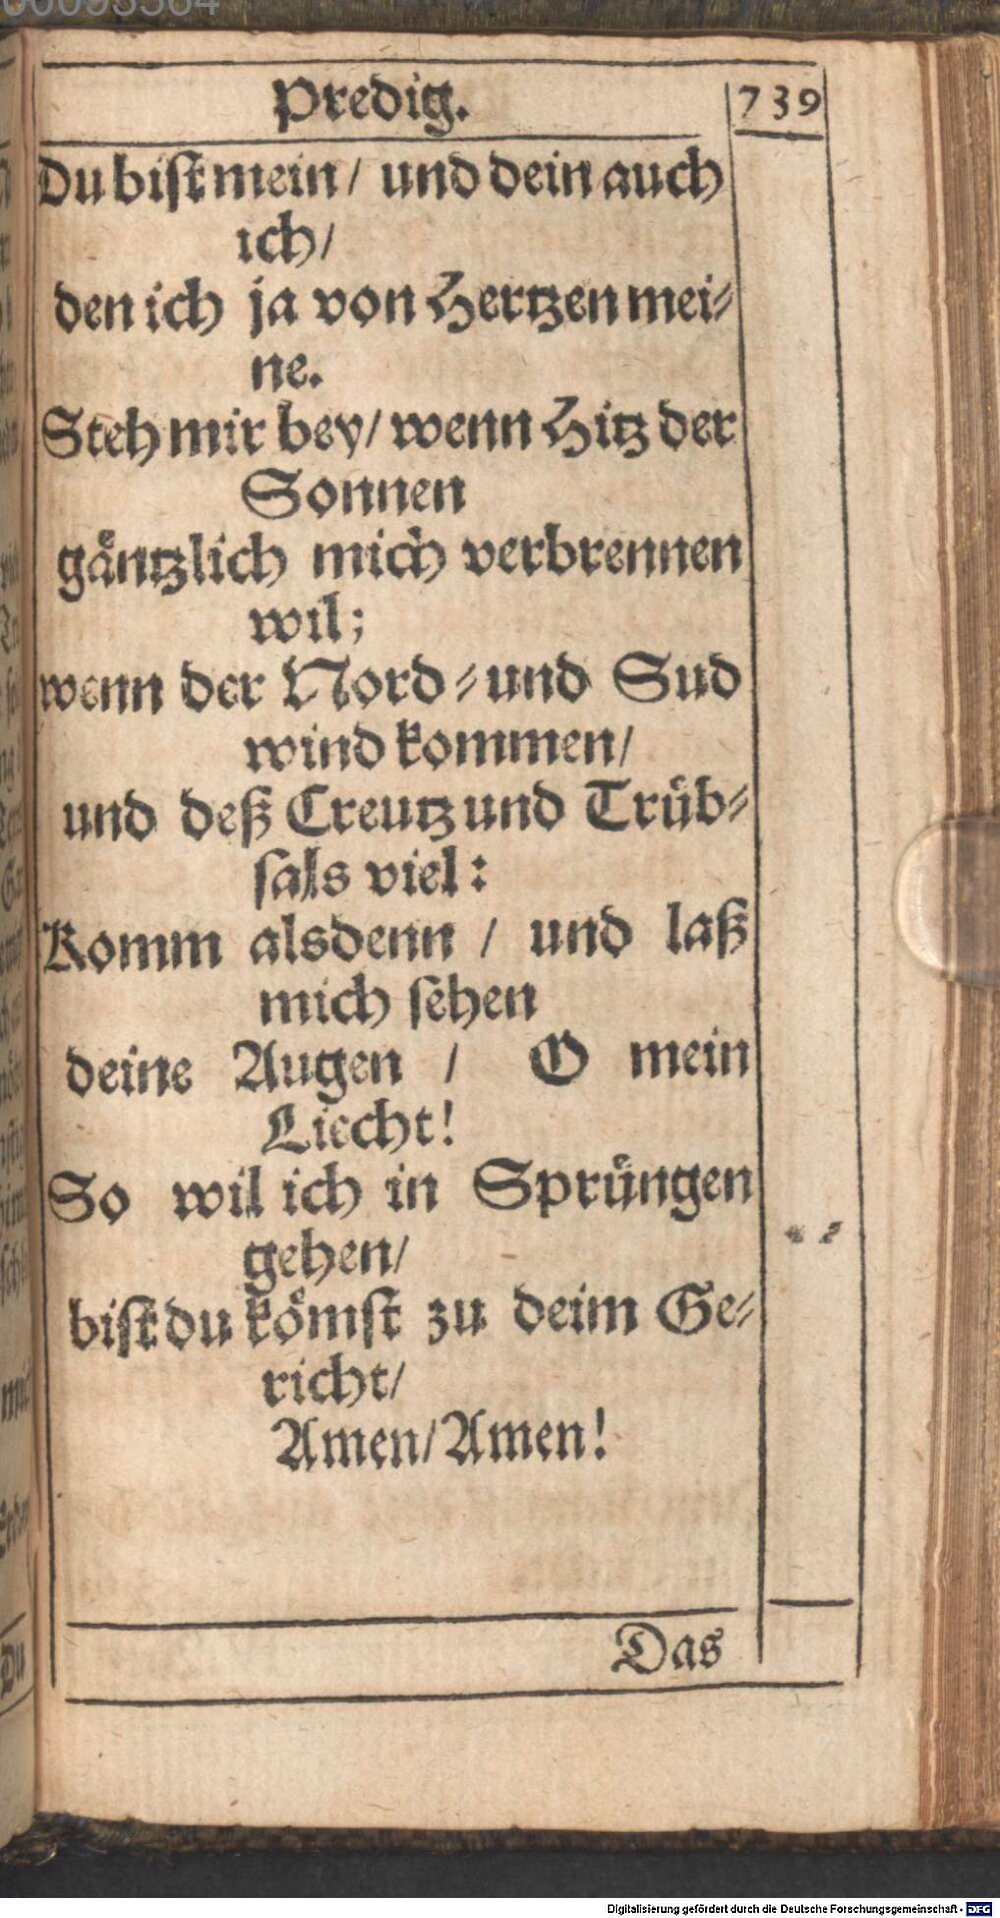 Predig. 739
Du bist mein / und dein auch
ich/
den ich ja von Hertzen mei⸗
ne.
Steh mir bey/ wenn Hitz der
Sonnen
gäntzlich mich verbrennen
wil;
wenn der Nord⸗und Sud
wind kommen/
und deß Creutz und Trüb⸗
sals viel:
Komm alsdenn / und laß
mich sehen
deine Augen / O mein
Liecht!
So wil ich in Sprüngen
gehen/
bist du kömst zu deim Ge⸗
richt/
Amen/ Amen!
Das
Digitalisierung gefördert durch die Deutsche Forschungsgemeinschaft - DFG